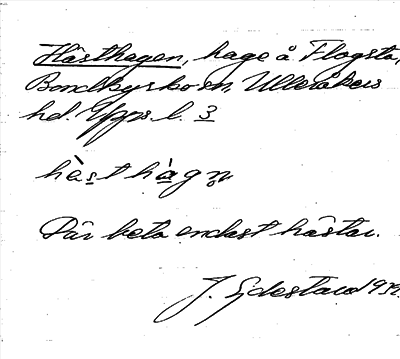 Hästhagen, hage å Flogsta,
Bondkyrko sn, Ulleråkers
hd. Upps. l. 3
hä̀st hàgn̥
Där beta endast hästar.
J. Sjöstrand 1939.